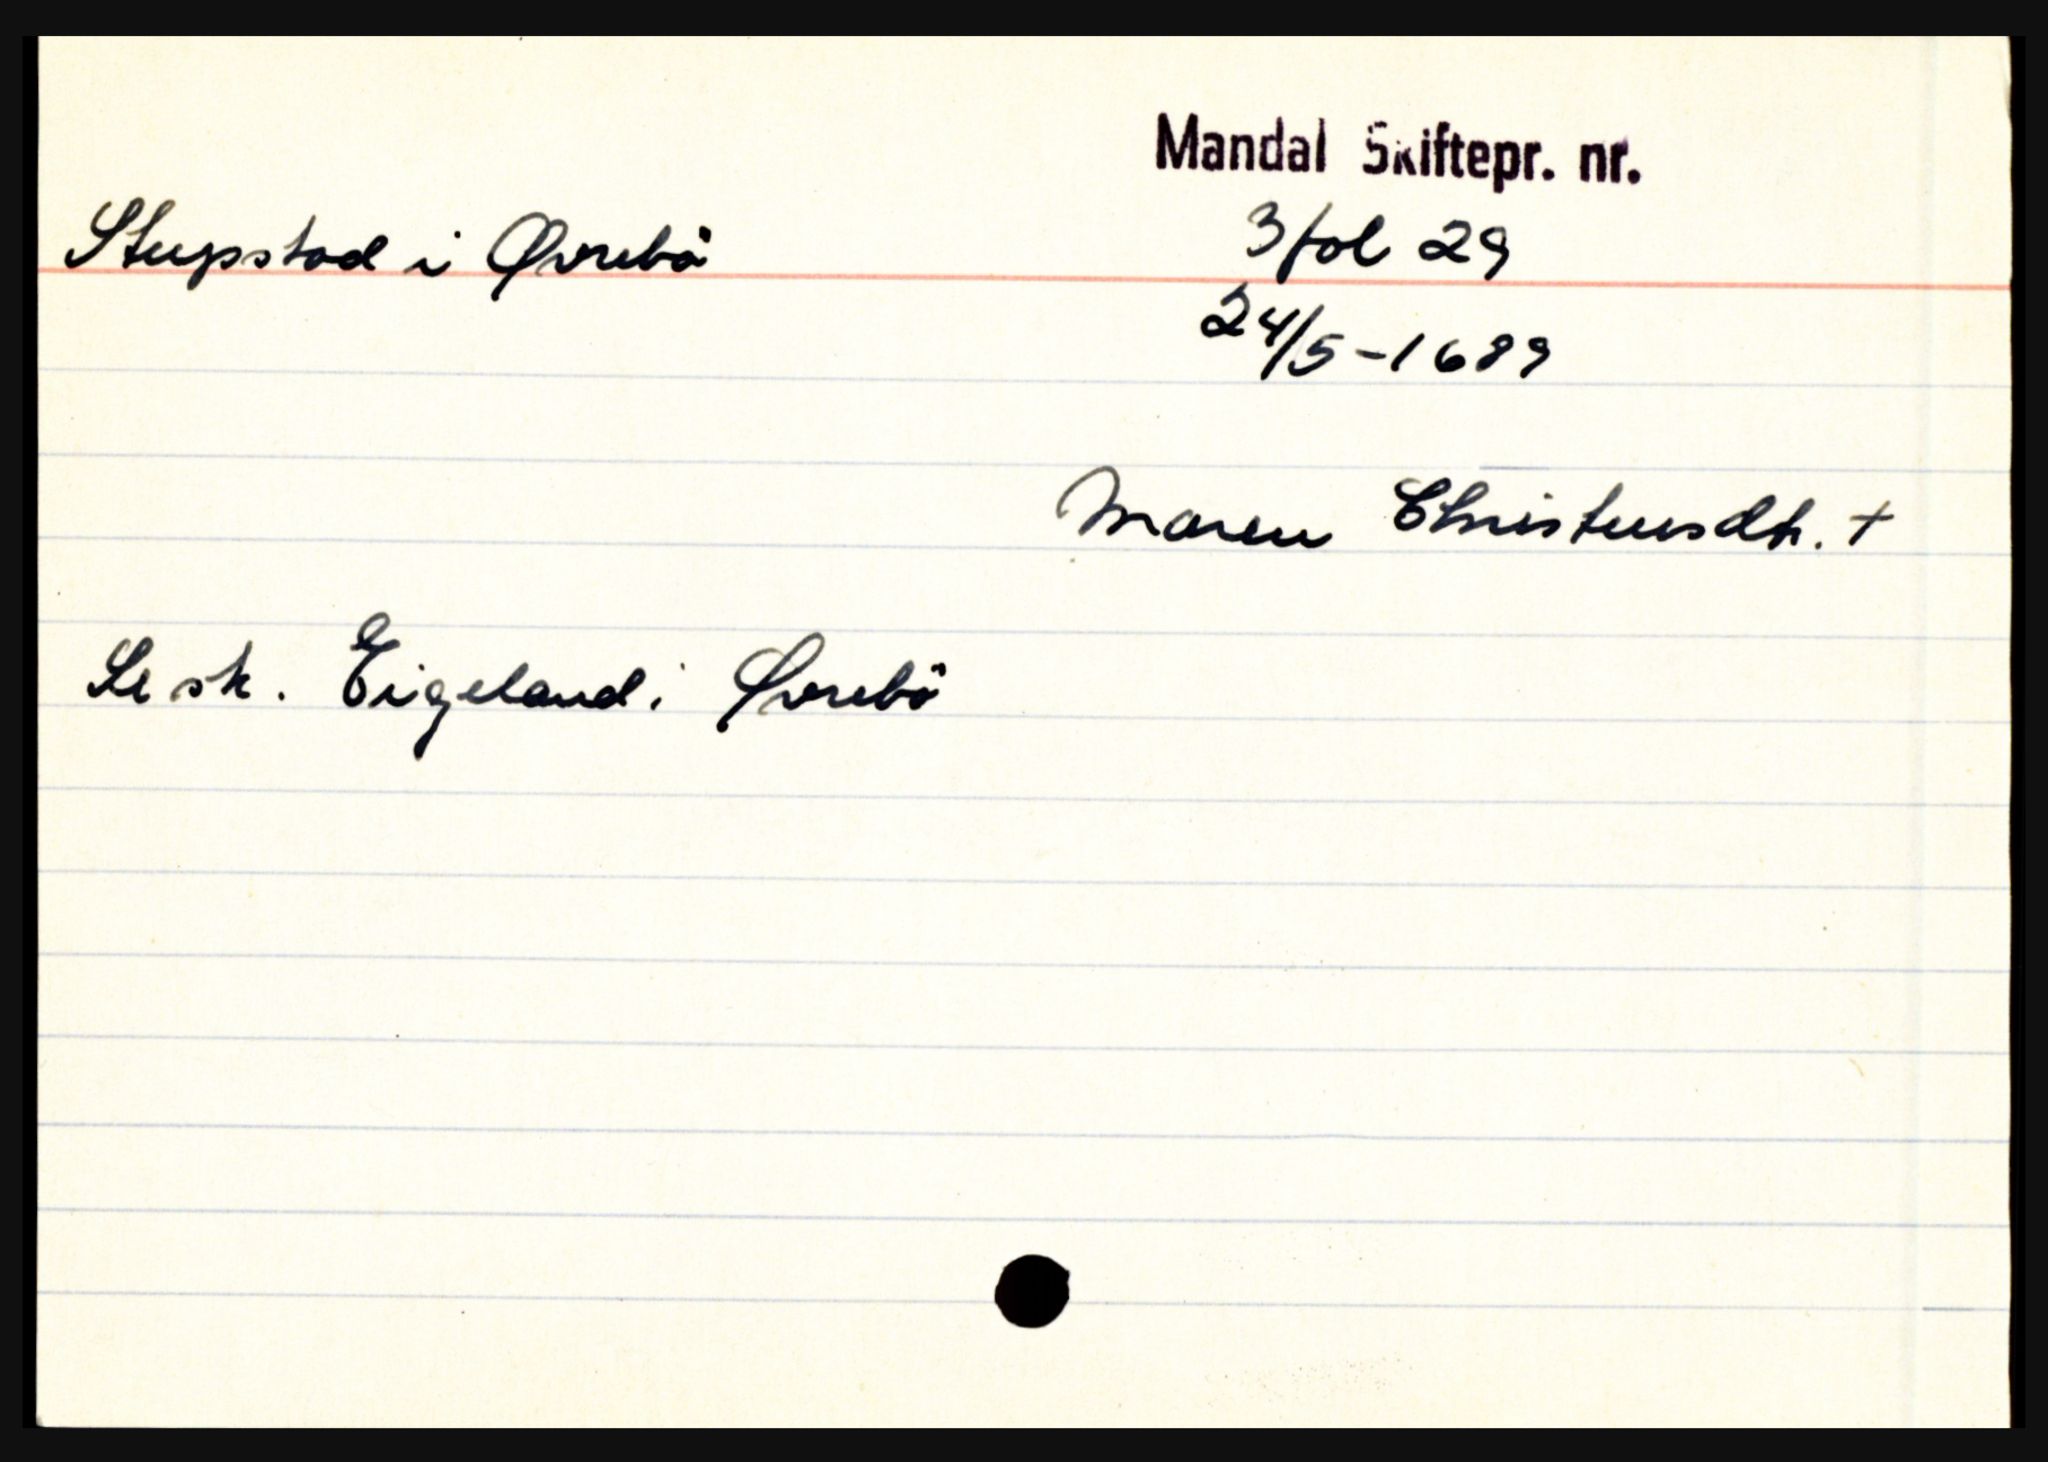 Mandal Skiftepr. nr.
Stupstad i Øvrebö 3 fol 29
24/5-1689
Maren Christensdtr. +
Se sk. Eigeland i Øvrebö